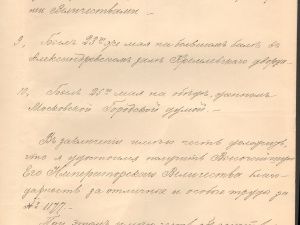 ми Величествами. –
9. Былъ 23го же мая на бывшемъ балѣ въ
Александровскомъ залѣ Кремлевскаго дворца. –
10. Былъ 25го мая на обѣдѣ, данномъ
Московской Городской думой. –
Въ заключеніи имѣю честь доложить,
что я удостоился получить Высочайшую
Его Императорскаго Величества благо-
дарность за отличные и особые труды за
№ 1177. –
При этомъ имѣю честь